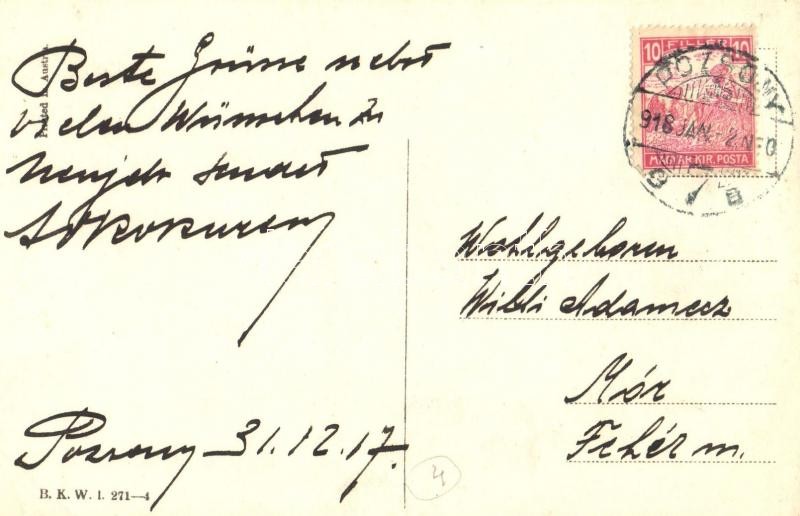 Beste Grüsse nebst
vielen Wünschen zu
Neujahr sendet
Pozsony 31.12.17.
B. K. W. I. 271—4
Printed in Austria
10 FILLÉR 10
MAGYAR KIR. POSTA
POZSONY
918 JAN.
Wohlgeboren
Willi Adamecz
Mór
Fehér m.
4